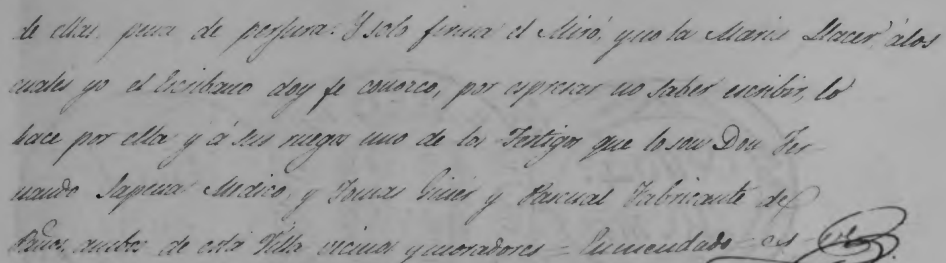 de ellas, pena de perjura. Y solo firma el Miró, y no la Maria Llacer, á los
cuales yo el Escribano doy fe conozco, por espresar no saber escribir, lo
hace por ella y á sus ruegos uno de los Testigos que lo son Don Fer-
nando Sapena Medico, y Tomas Giner y Pascual Fabricante de
Paños, ambos de esta Villa vecinos y moradores = Enmendado =